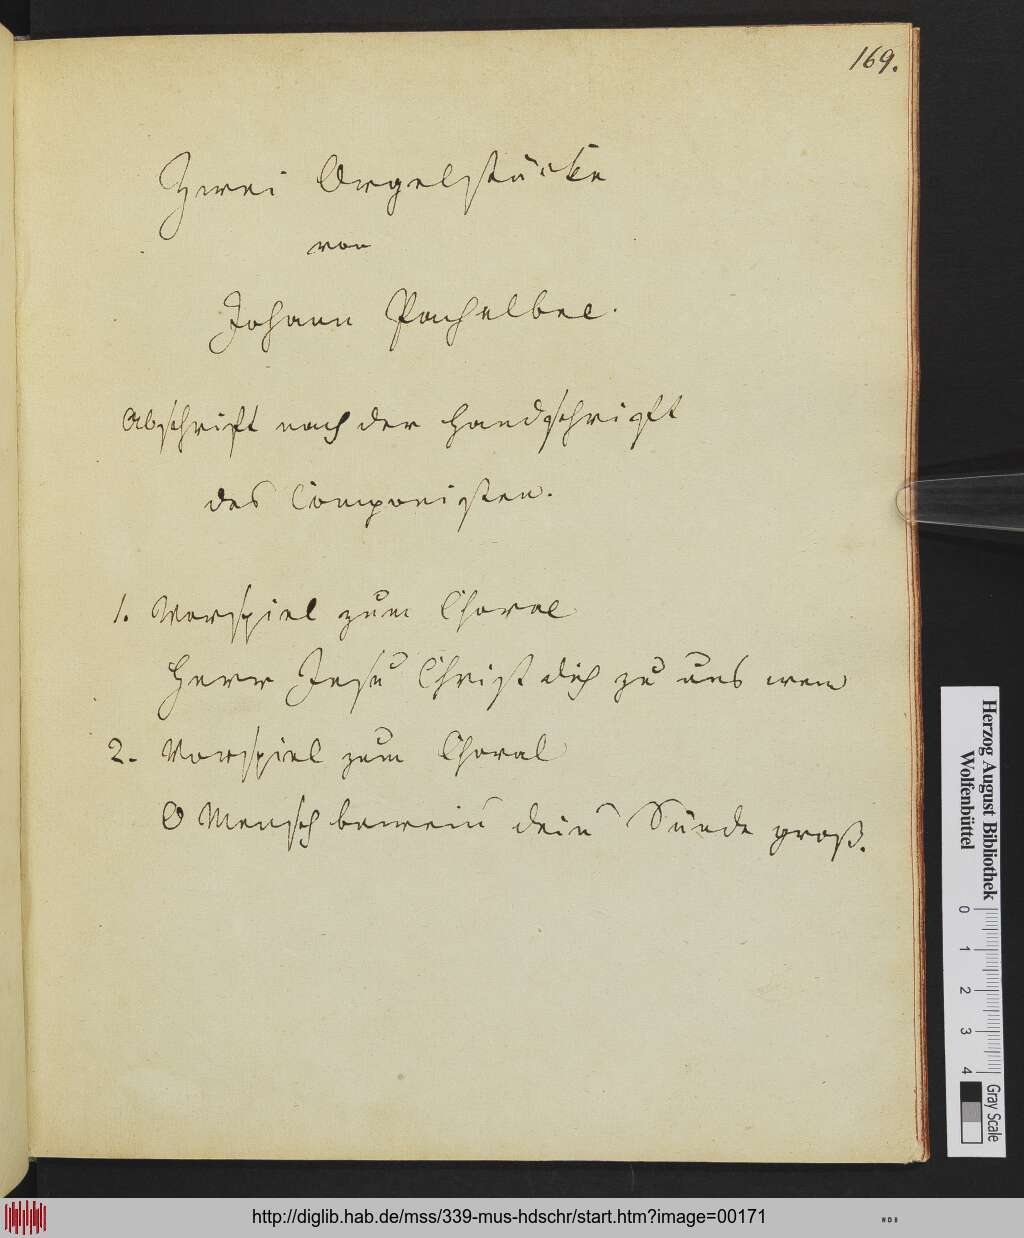 169.
Zwei Orgelstücke
von
Johann Pachelbel.
Abschrift nach der Handschrift
des Componisten.
1. Vorspiel zum Choral
Herr Jesu Christ dich zu uns wend
2. Vorspiel zum Choral
O Mensch bewein dein Sünde groß.
Herzog August Bibliothek
Wolfenbüttel
0 1 2 3 4
Gray Scale
http://diglib.hab.de/mss/339-mus-hdschr/start.htm?image=00171